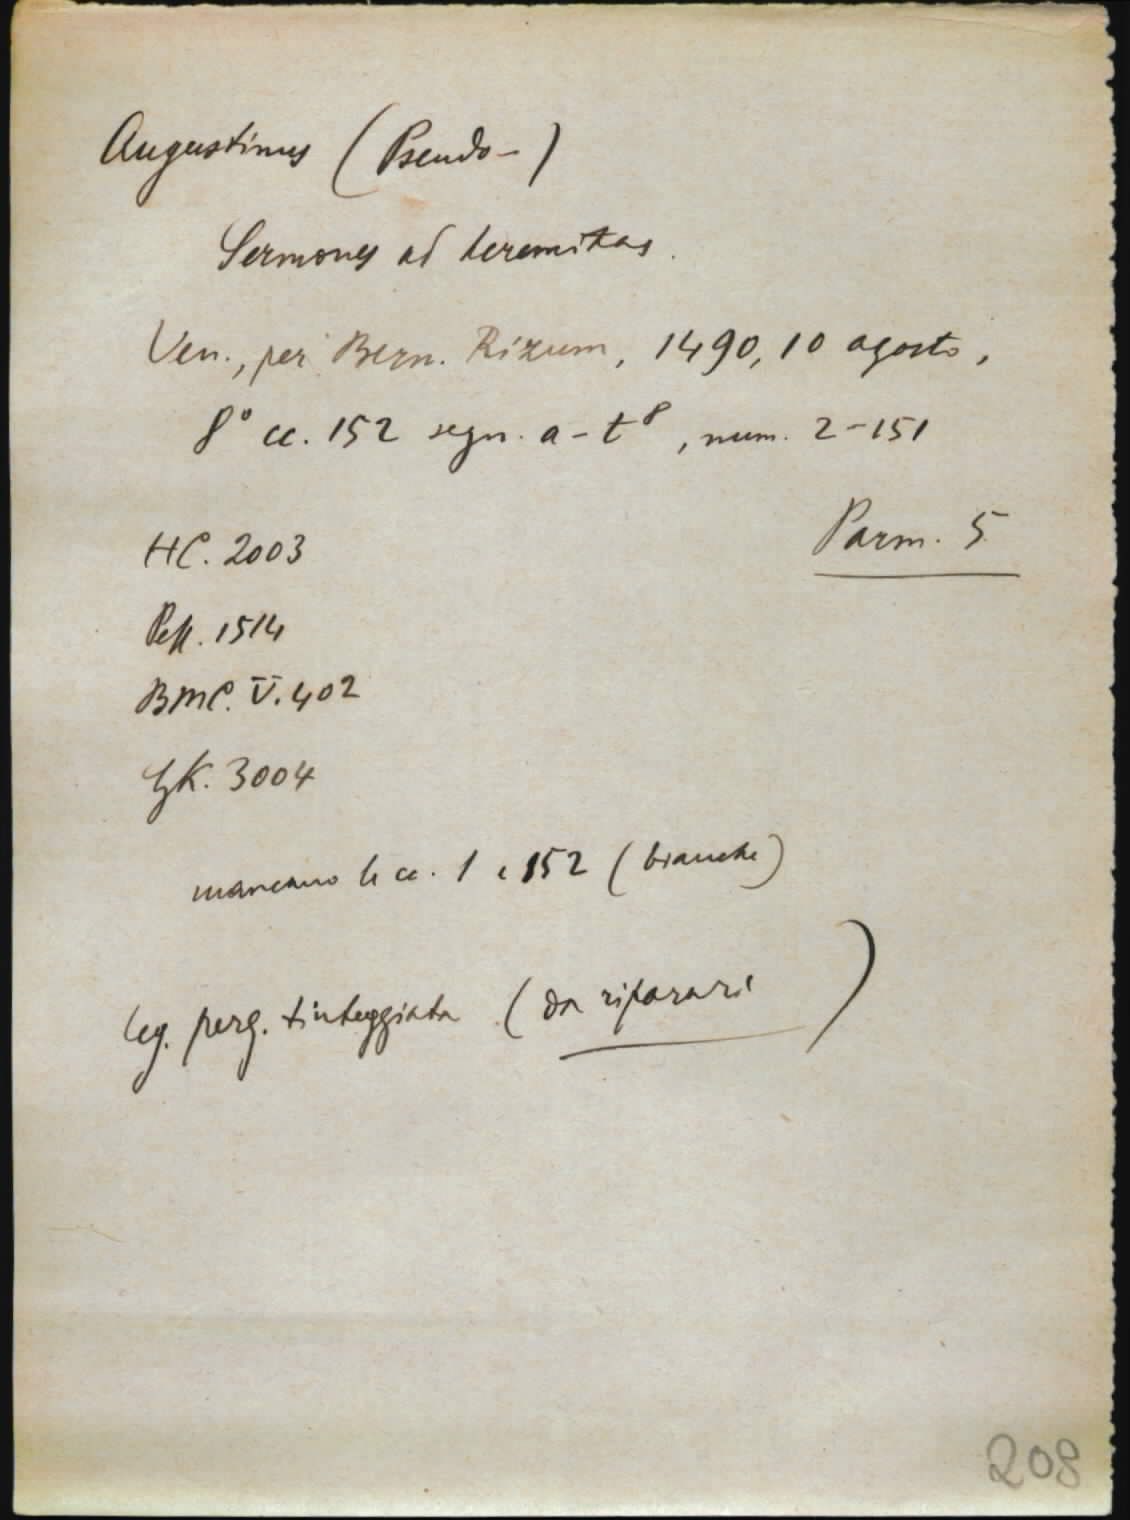 Augustinus (Pseudo-)
Sermones ad heremitas.
Ven., per Bern. Rizum, 1490, 10 agosto,
8° cc. 152 segn. a-t⁸, num. 2-151
Parm. 5
HC. 2003
Pell. 1514
BMC. V. 402
GK. 3004
mancano le cc. 1 e 152 (bianche)
leg. perg. tinteggiata (da riparari)
208